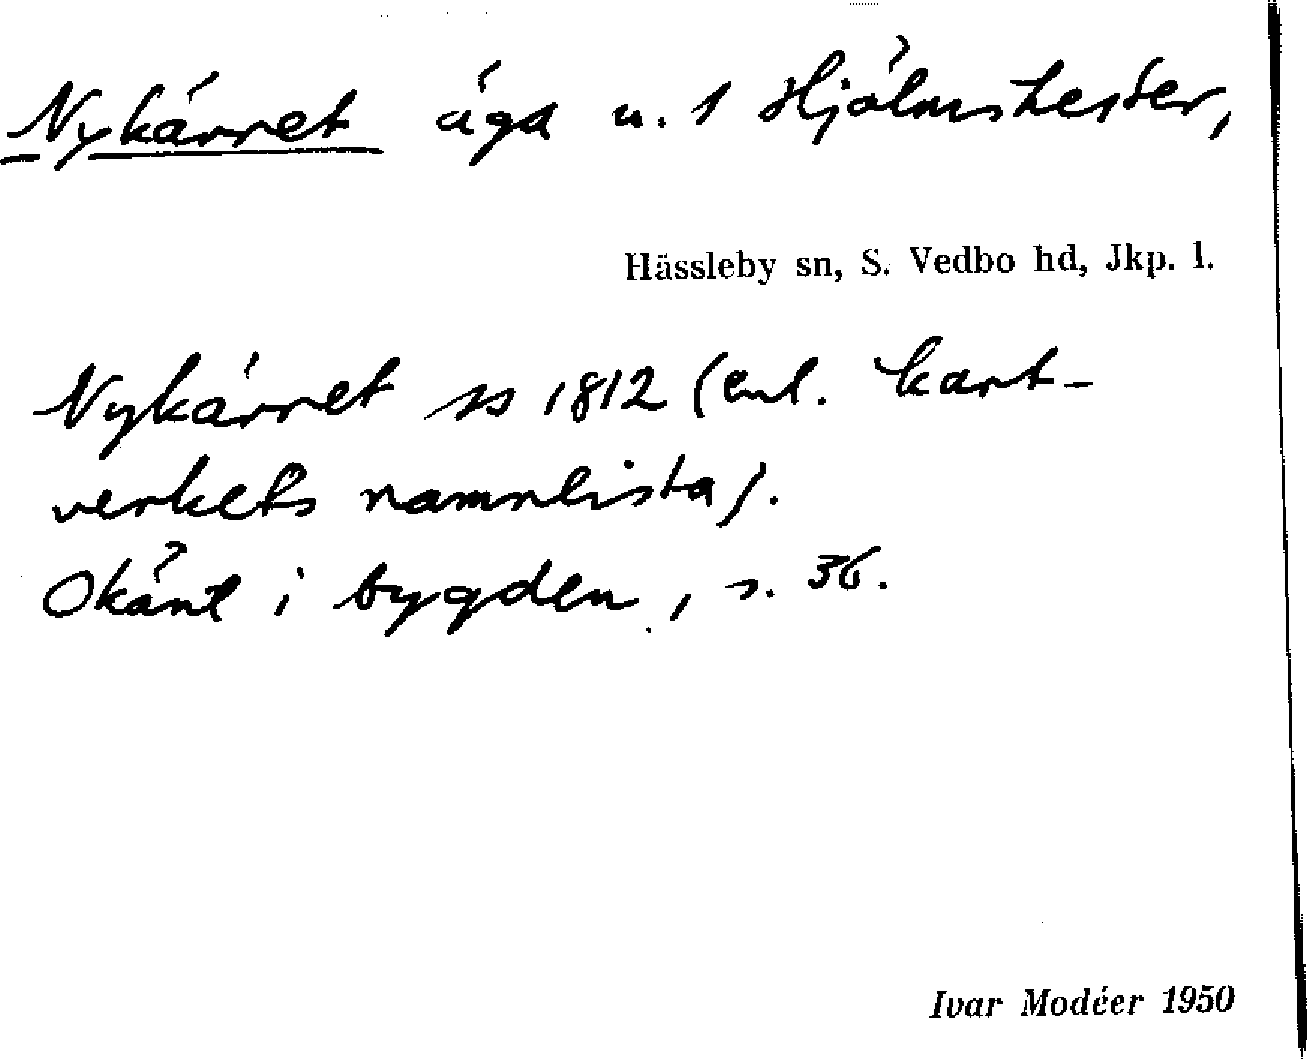 Nykärret äga u. 1 Hjälmshester,
Hässleby sn, S. Vedbo hd, Jkp. l.
Nykärret ss 1812 (enl. kart-
verkets namnlista).
Okänt i bygden, s. 36.
Ivar Modéer 1950